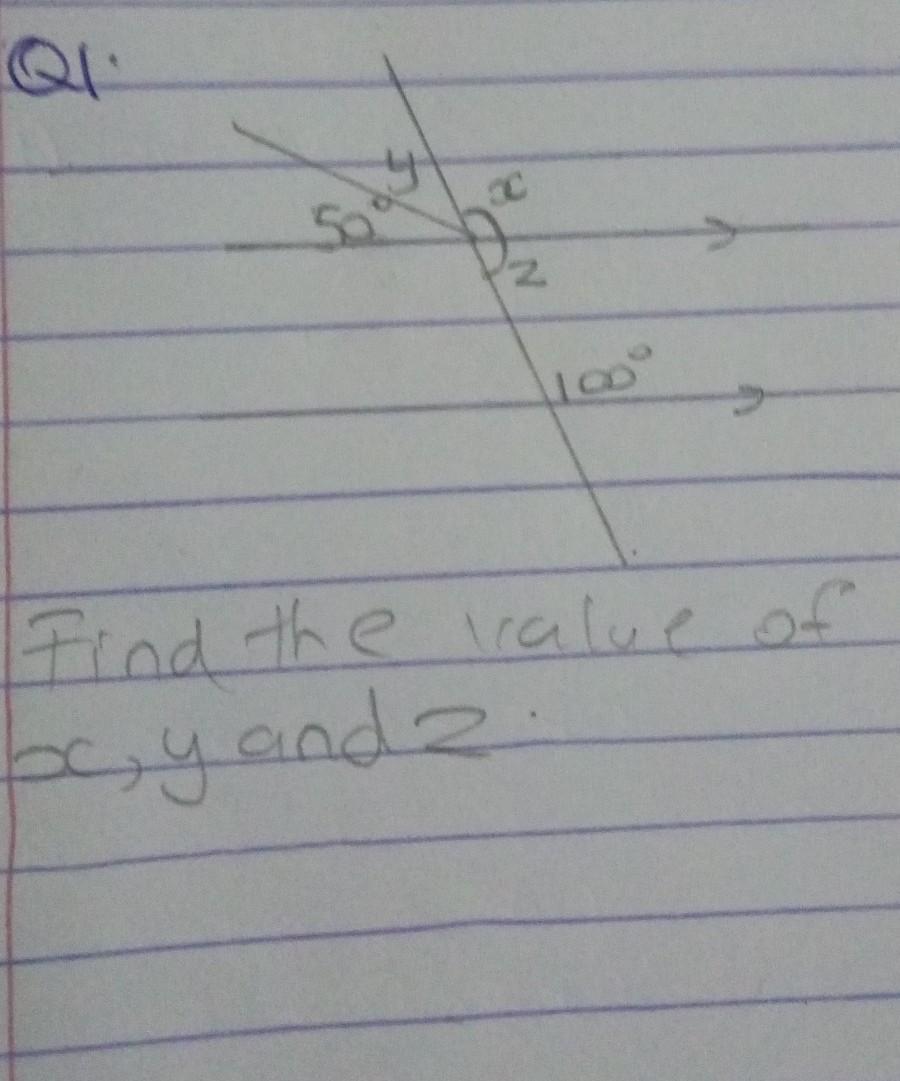 Q1.
y
x
50°
z
100°
Find the value of
x, y and z.